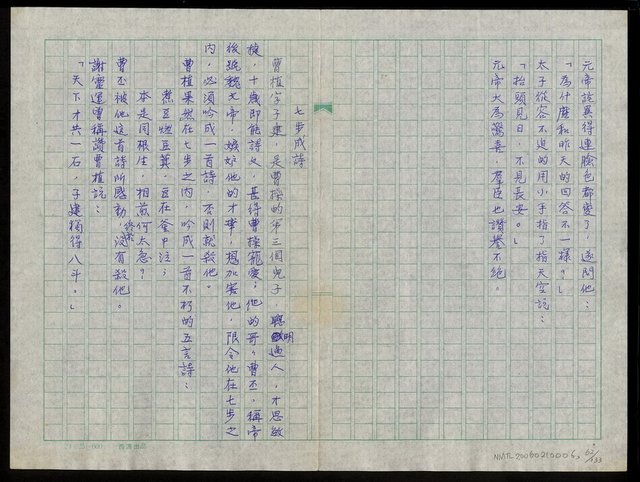 元帝詫異得連臉色都變了，遂問他：
「為什麼和昨天的回答不一樣？」
太子從容不迫的用小手指了指天空說：
「抬頭見日，不見長安。」
元帝大為驚喜，羣臣也讚譽不絕。
七步成詩
曹植字子建，是曹操的第三個兒子，聰明過人，才思敏
捷，十歲即能詩文，甚得曹操寵愛；他的哥哥曹丕，稱帝
後號魏文帝，嫉妒他的才華，想加害他，限令他在七步之
內，必須吟成一首詩，否則就殺他。
曹植果然在七步之內，吟成一首不朽的五言詩：
煮豆燃豆萁，豆在釜中泣；
本是同根生，相煎何太急？
曹丕被他這首詩所感動，終於沒有殺他。
謝靈運曾稱讚曹植說：
「天下才共一石，子建獨得八斗。」
(25×600)
NMTL20060210006
62/133